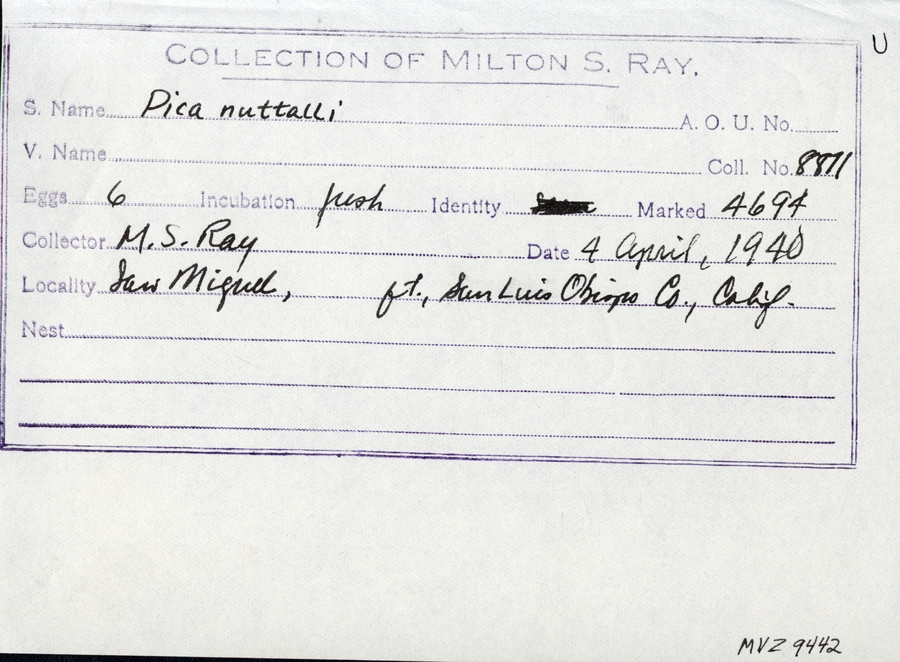 U
COLLECTION OF MILTON S. RAY.
S. Name Pica nuttalli A. O. U. No.
V. Name Coll. No. 8871
Eggs 6 Incubation fresh Identity Marked 4694
Collector M. S. Ray Date 4 April, 1940
Locality San Miguel, ft., San Luis Obispo Co., Calif.
Nest
MVZ 9442